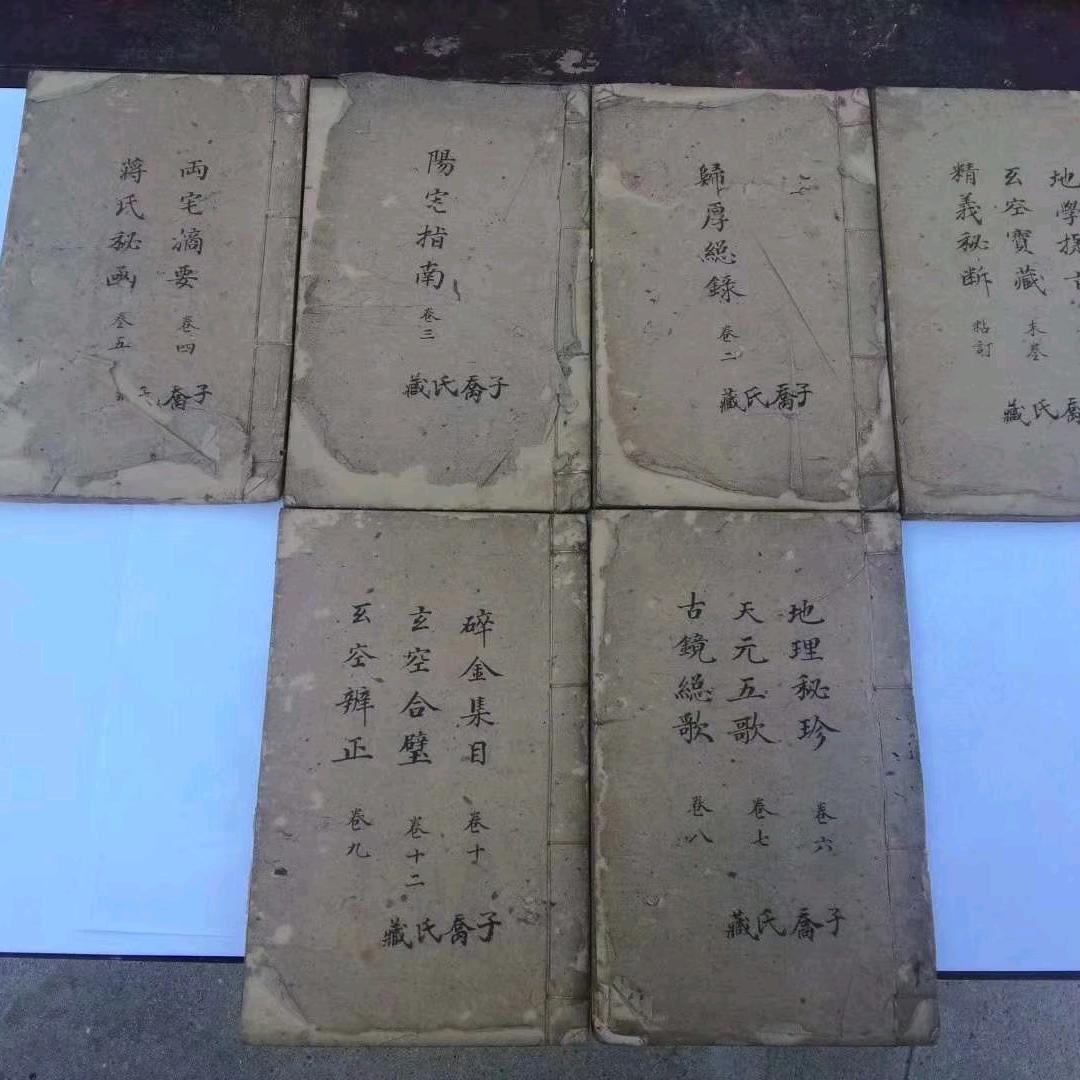 地學
玄空寶藏 末卷
精義秘断 粘訂
氏藏
歸厚緫錄 卷二
子喬氏藏
陽宅指南 卷三
子喬氏藏
両宅滴要 卷四
蔣氏秘函 卷五
子喬
地理秘珍 卷六
天元五歌 卷七
古鏡緫歌 卷八
子喬氏藏
碎金集目 卷十
玄空合璧 卷十二
玄空辨正 卷九
子喬氏藏